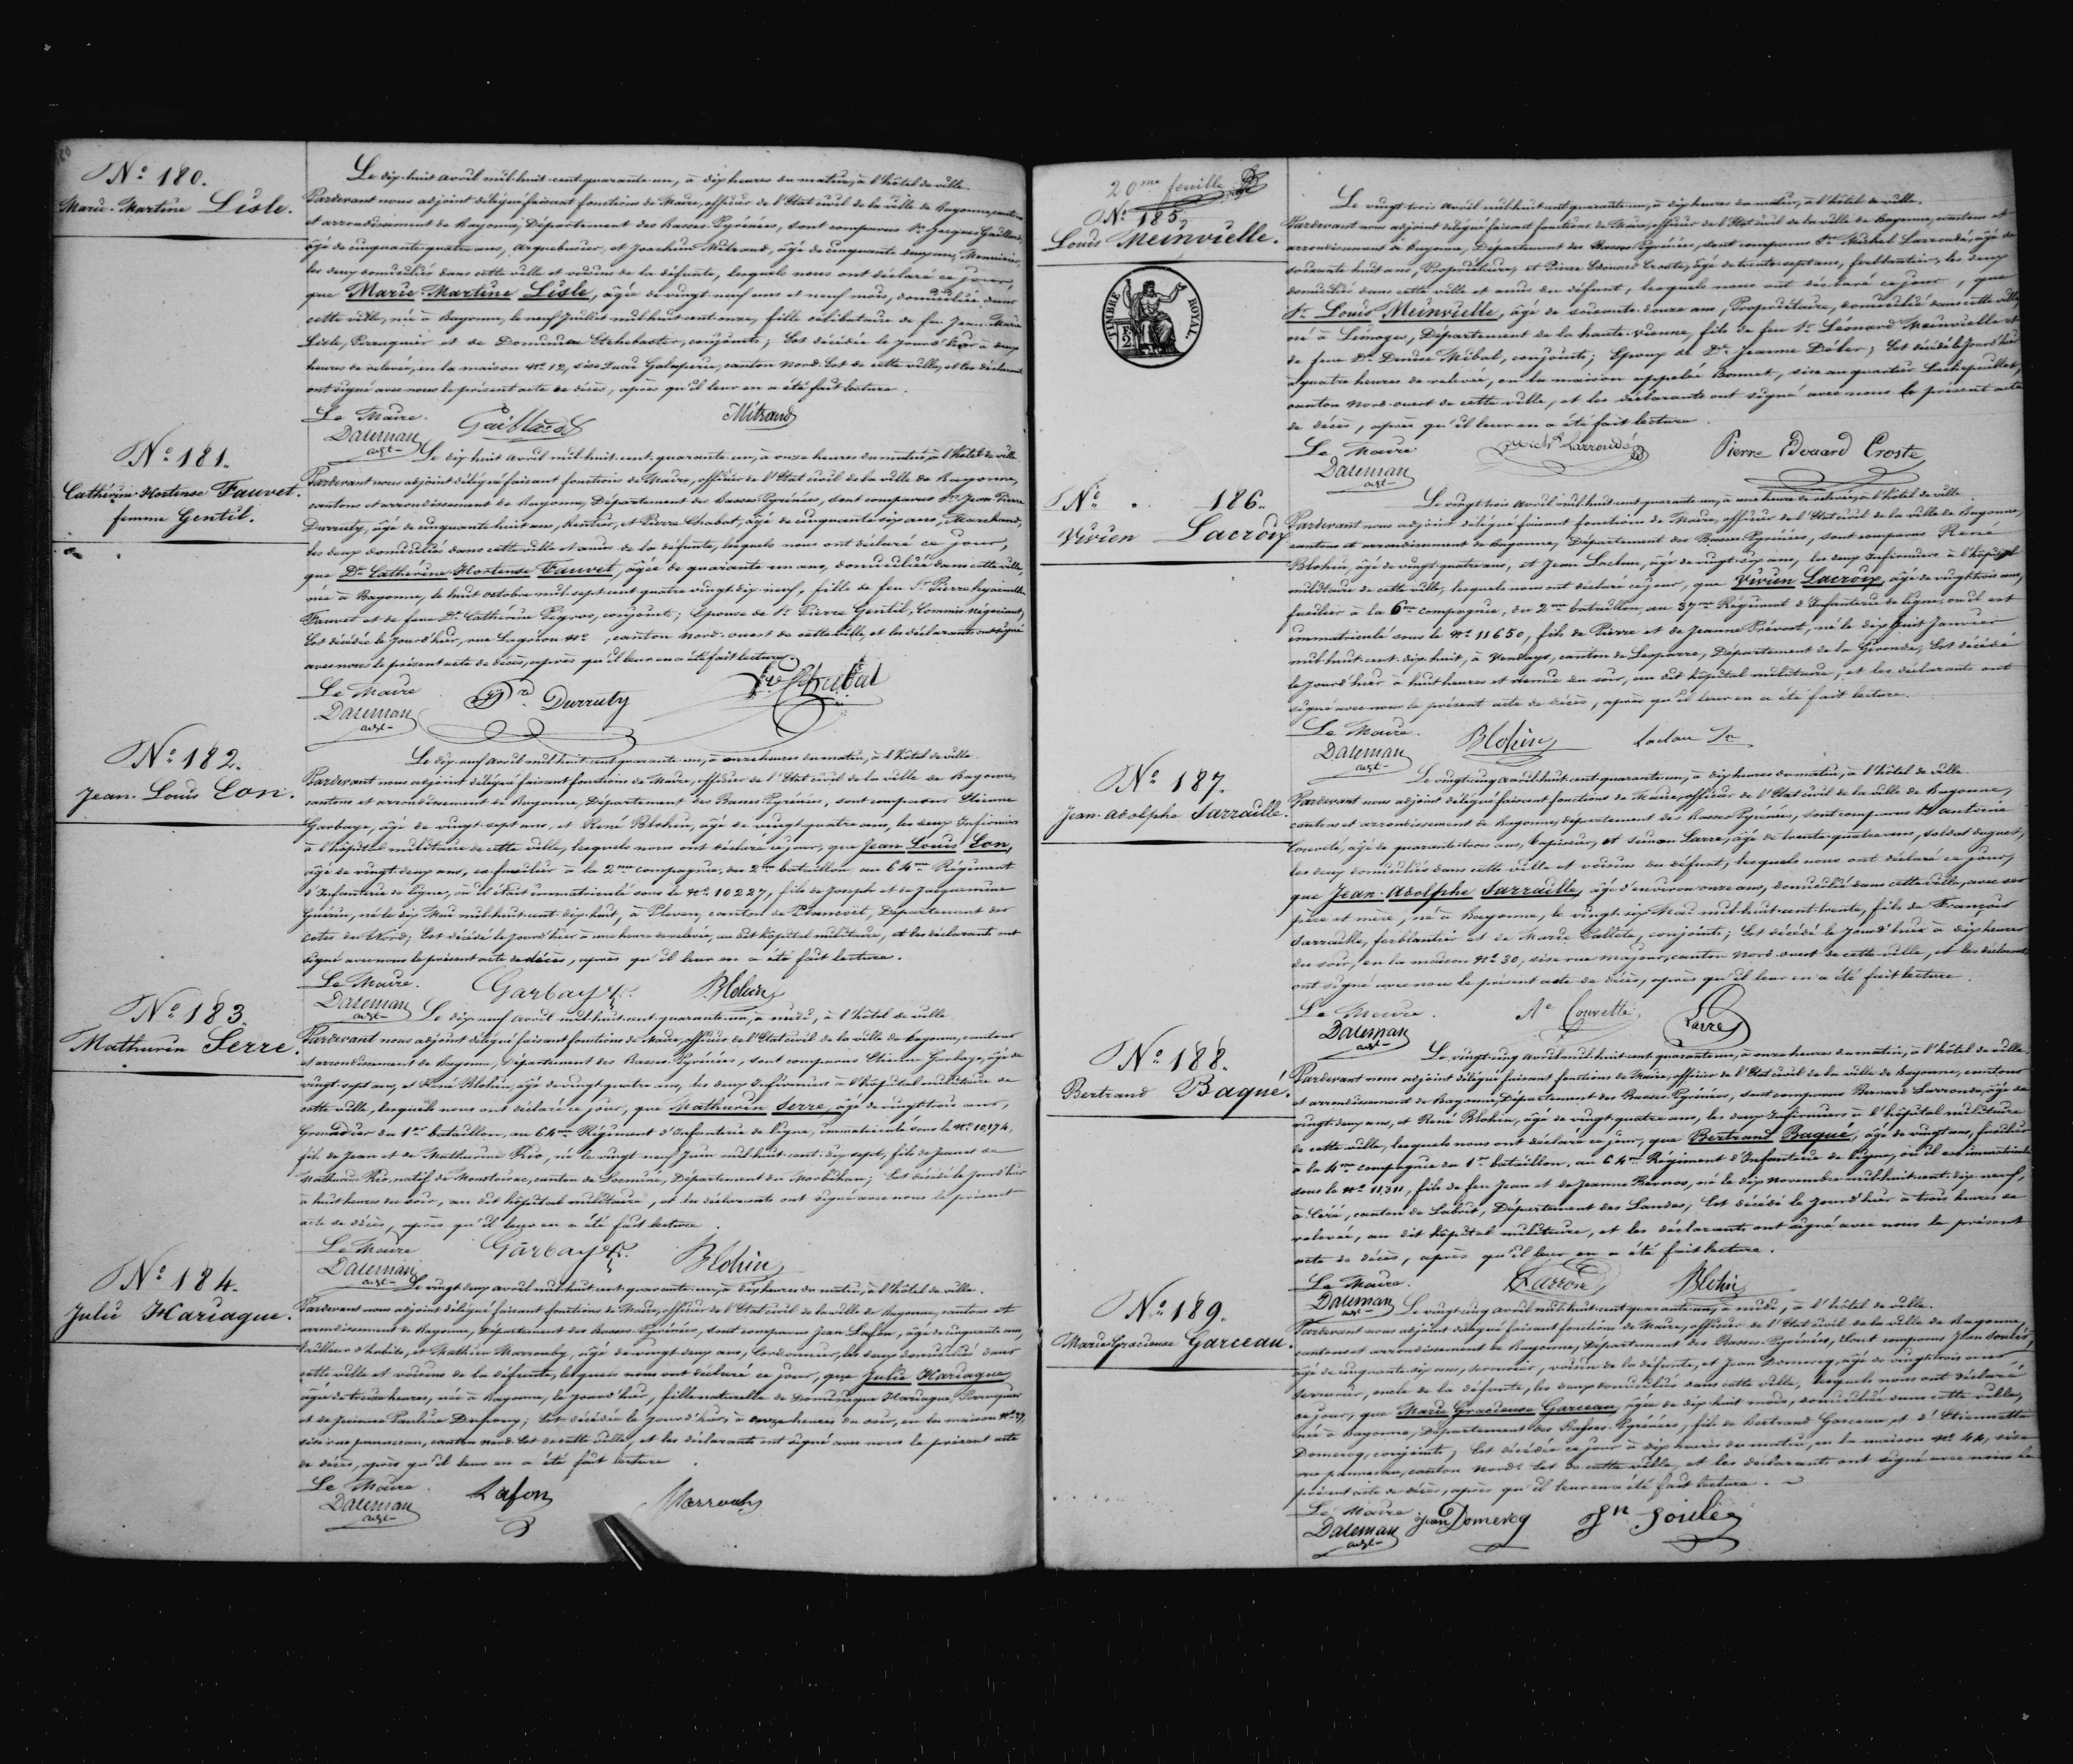 N.º 180.
Marie-Martine Lisle.
Le dix-huit avril mil-huit-cent-quarante-un, à dix heures du matin, à l'hôtel de ville.
Pardevant nous adjoint délégué faisant fonctions de Maire, officier de l'Etat civil de la ville de Bayonne, cantons
et arrondissement de Bayonne, Département des Basses-Pyrénées, sont comparus Sr. Jacques Gaillard,
âgé de cinquante-quatre ans, arquebusier, et Joachim Mitrand, âgé de cinquante deux ans, Menuisier,
les deux domiciliés dans cette ville et voisins de la défunte, lesquels nous ont déclaré ce jour,
que Marie-Martine Lisle, âgée de vingt-neuf ans et neuf mois, domiciliée dans
cette ville, née à Bayonne, le neuf Juillet mil-huit-cent-onze, fille célibataire de feu Jean-Marie
Lisle, Perruquier et de Dominica Etchebaster, conjoints; Est décédée le jourd'hier à deux
heures de relevée, en la maison Nº 12, sise Quai Galuperie, canton Nord-Est de cette ville, et les déclarants
ont signé avec nous le présent acte de décès, après qu'il leur en a été fait lecture.
Le Maire.
Daleman Gaillard Mitrand
adjt
N.º 181.
Catherine-Hortense Fauvet.
femme Gentil.
Le dix-huit avril mil-huit-cent-quarante-un, à onze heures du matin, à l'hôtel de ville.
Pardevant nous adjoint délégué faisant fonctions de Maire, officier de l'Etat civil de la ville de Bayonne,
cantons et arrondissement de Bayonne, Département des Basses-Pyrénées, sont comparus Sr. Jean-Pierre
Durruty, âgé de cinquante-huit ans, Rentier, et Pierre Chabat, âgé de cinquante-six ans, Marchand,
les deux domiciliés dans cette ville et amis de la défunte, lesquels nous ont déclaré ce jour,
que De. Catherine-Hortense Fauvet, âgée de quarante-un ans, domiciliée dans cette ville,
née à Bayonne, le huit octobre mil-sept-cent-quatre-vingt-dix-neuf, fille de feu Sr. Pierre hyacinthe
Fauvet et de feue De. Catherine conjoints; Epouse de Sr. Pierre Gentil, Commis-négociant;
Est décédée le jourd'hier, rue Lagréou Nº , canton Nord-ouest de cette ville, et les déclarants ont signé
avec nous le présent acte de décès, après qu'il leur en a été fait lecture.
Le Maire
Daleman Durruty Chabat
adjt
N.º 182.
Jean-Louis Eon.
Le dix-neuf avril mil-huit-cent-quarante-un, à onze heures du matin, à l'hôtel de ville.
Pardevant nous adjoint délégué faisant fonctions de Maire, officier de l'Etat civil de la ville de Bayonne,
cantons et arrondissement de Bayonne, Département des Basses-Pyrénées, sont comparus Etienne
Garbaye, âgé de vingt-sept ans, et René Blohin, âgé de vingt-quatre ans, les deux Infirmiers
à l'hôpital militaire de cette ville, lesquels nous ont déclaré ce jour, que Jean-Louis Eon,
âgé de vingt-deux ans, ex fusilier à la 2me compagnie, du 2me bataillon au 64me Régiment
d'Infanterie de ligne, où il était immatriculé sous le Nº 10227, fils de Joseph et de Jacquemine
Guérin, né le dix Mai mil-huit-cent-dix-huit, à Pleven, canton de Plancoët, Département des
Cotes du Nord; Est décédé le jourd'hier à une heure de relevée, au dit hôpital militaire, et les déclarants ont
signé avec nous le présent acte de décès, après qu'il leur en a été fait lecture.
Le Maire.
Daleman Garbaye Blohin
adjt
N.º 183.
Mathurin Serre.
Le dix-neuf avril mil-huit-cent-quarante-un, à midi, à l'hôtel de ville.
Pardevant nous adjoint délégué faisant fonctions de Maire, officier de l'Etat civil de la ville de Bayonne, cantons
et arrondissement de Bayonne, Département des Basses-Pyrénées, sont comparus Etienne Garbaye, âgé de
vingt-sept ans, et René Blohin, âgé de vingt-quatre ans, les deux Infirmiers à l'hôpital militaire de
cette ville, lesquels nous ont déclaré ce jour, que Mathurin Serre, âgé de vingt-trois ans,
Grenadier du 1er bataillon, au 64me Régiment d'Infanterie de ligne, immatriculé sous le Nº 10,174,
fils de Jean et de Mathurine Rio, né le vingt-neuf Juin mil-huit-cent-dix-sept, fils de Jean et de
Mathurine Rio, natif de Moustoirac, canton de Locminé, Département du Morbihan; Est décédé le jourd'hier
à huit heures du soir, au dit hôpital militaire, et les déclarants ont signé avec nous le présent
acte de décès, après qu'il leur en a été fait lecture.
Le Maire
Daleman Garbaye Blohin
adjt
N.º 184.
Julie Hariague.
Le vingt-deux avril mil-huit-cent-quarante-un, à dix heures du matin, à l'hôtel de ville.
Pardevant nous adjoint délégué faisant fonctions de Maire, officier de l'Etat civil de la ville de Bayonne, cantons et
arrondissement de Bayonne, Département des Basses-Pyrénées, sont comparus Jean Lafon, âgé de cinquante ans,
tailleur d'habits, et Mathieu Marrouby, âgé de vingt-deux ans, Cordonnier, les deux domiciliés dans
cette ville et voisins de la défunte, lesquels nous ont déclaré ce jour, que Julie Hariague,
âgée de treize heures, née à Bayonne, le jourd'hier, fille naturelle de Dominique Hariague, Perruquier
et de Jeanne Pauline Dupouy; Est décédée le jourd'hier, à onze heures du soir, en la maison Nº 27,
sise rue panneceau, canton Nord-Est de cette ville, et les déclarants ont signé avec nous le présent acte
de décès, après qu'il leur en a été fait lecture.
Le Maire.
Daleman Lafon Marrouby
adjt
20me feuille
N.º 185.
Louis Meinvielle.
TIMBRE ROYAL
Le vingt-trois avril mil-huit-cent-quarante-un, à dix heures du matin, à l'hôtel de ville.
Pardevant nous adjoint délégué faisant fonctions de Maire, officier de l'Etat civil de la ville de Bayonne, cantons et
arrondissement de Bayonne, Département des Basses-Pyrénées, sont comparus Sr. Michel Larroudé, âgé de
soixante-huit ans, Propriétaire, et Pierre Edouard Croste, âgé de trente-sept ans, ferblantier, les deux
domiciliés dans cette ville et amis du défunt, lesquels nous ont déclaré ce jour, que
Sr. Louis Meinvielle, âgé de soixante-douze ans, Propriétaire, domicilié dans cette ville,
né à Limoges, Département de la haute-Vienne, fils de feu Sr. Léonard Meinvielle et
de feue De. Denise Mibal, conjoints; Epoux de De. Jeanne Déler; Est décédé le jourd'hier
à quatre heures de relevée, en la maison appelée Bonnet, sise au quartier Lachepaillet,
canton Nord-ouest de cette ville, et les déclarants ont signé avec nous le présent acte
de décès, après qu'il leur en a été fait lecture.
Le Maire
Daleman Michel Larroudé Pierre Edouard Croste
adjt
N.º 186.
Vivien Lacroix
Le vingt-trois avril mil-huit-cent-quarante-un, à une heure de relevée, à l'hôtel de ville.
Pardevant nous adjoint délégué faisant fonctions de Maire, officier de l'Etat civil de la ville de Bayonne,
cantons et arrondissement de Bayonne, Département des Basses-Pyrénées, sont comparus René
Blohin, âgé de vingt-quatre ans, et Jean Laclau, âgé de vingt-six ans, les deux Infirmiers à l'hôpital
militaire de cette ville, lesquels nous ont déclaré ce jour, que Vivien Lacroix, âgé de vingt-trois ans,
fusilier à la 6me compagnie, du 2me bataillon, au 37me Régiment d'Infanterie de ligne, où il est
immatriculé sous le Nº 11650, fils de Pierre et de Jeanne Prévost, né le dix-huit Janvier
mil-huit-cent-dix-huit, à Vendays, canton de Lesparre, Département de la Gironde; Est décédé
le jourd'hier à huit heures et demie du soir, au dit hôpital militaire, et les déclarants ont
signé avec nous le présent acte de décès, après qu'il leur en a été fait lecture.
Le Maire.
Daleman Blohin Laclau Jn
adjt
N.º 187.
Jean-adolphe Sarraille.
Le vingt-cinq avril mil-huit-cent-quarante-un, à dix heures du matin, à l'hôtel de ville.
Pardevant nous adjoint délégué faisant fonctions de Maire, officier de l'Etat civil de la ville de Bayonne,
cantons et arrondissement de Bayonne, département des Basses-Pyrénées, sont comparus antoine
Couvette, âgé de quarante-trois ans, Tapissier, et Simon Larre, âgé de trente-quatre ans, soldat du guet,
les deux domiciliés dans cette ville et voisins du défunt, lesquels nous ont déclaré ce jour,
que Jean-Adolphe Sarraille, âgé d'environ onze ans, domicilié dans cette ville, avec ses
père et mère, né à Bayonne, le vingt-six Mai mil-huit-cent-trente, fils de François
Sarraille, ferblantier et de Marie Tallete, conjoints; Est décédé le jourd'hier à dix heures
du soir, en la maison Nº 30, sise rue majour, canton Nord-ouest de cette ville, et les déclarants
ont signé avec nous le présent acte de décès, après qu'il leur en a été fait lecture.
Le Maire.
Daleman Ae Couvette Larre
adjt
N.º 188.
Bertrand Baqué.
Le vingt-cinq avril mil-huit-cent-quarante-un, à onze heures du matin, à l'hôtel de ville.
Pardevant nous adjoint délégué faisant fonctions de Maire, officier de l'Etat civil de la ville de Bayonne, cantons
et arrondissement de Bayonne, Département des Basses-Pyrénées, sont comparus Bernard Larronde, âgé de
vingt-deux ans, et René Blohin, âgé de vingt-quatre ans, les deux Infirmiers à l'hôpital militaire
de cette ville, lesquels nous ont déclaré ce jour, que Bertrand Baqué, âgé de vingt ans, fusilier
à la 4me compagnie du 1er bataillon, au 64me Régiment d'Infanterie de ligne, où il est immatriculé
sous le Nº 11,311, fils de feu Jean et de Jeanne né le dix novembre mil-huit-cent-dix-neuf,
à Cère, canton de Labrit, Département des Landes; Est décédé le jourd'hier à trois heures de
relevée, au dit hôpital militaire, et les déclarants ont signé avec nous le présent
acte de décès, après qu'il leur en a été fait lecture.
Le Maire.
Daleman Larronde Blohin
adjt
N.º 189.
Marie-Gracieuse Garceau.
Le vingt-cinq avril mil-huit-cent-quarante-un, à midi, à l'hôtel de ville.
Pardevant nous adjoint délégué faisant fonctions de Maire, officier de l'Etat civil de la ville de Bayonne,
cantons et arrondissement de Bayonne, Département des Basses-Pyrénées, Sont comparus Jean Soulés,
âgé de cinquante-six ans, serrurier, voisin de la défunte, et Jean Domercq, âgé de vingt-trois ans
serrurier, oncle de la défunte, les deux domiciliés dans cette ville, lesquels nous ont déclaré
ce jour, que Marie Gracieuse Garceau, âgée de dix-huit mois, domiciliée dans cette ville,
née à Bayonne, Département des Basses-Pyrénées, fille de Bertrand Garceau et d'Etiennette
Domercq, conjoints; Est décédée ce jour à dix heures du matin, en la maison Nº 44, sise
rue panneceau, canton Nord-Est de cette ville, et les déclarants ont signé avec nous le
présent acte de décès, après qu'il leur en a été fait lecture.
Le Maire
Daleman Jean Domercq Jn Soulés
adjt